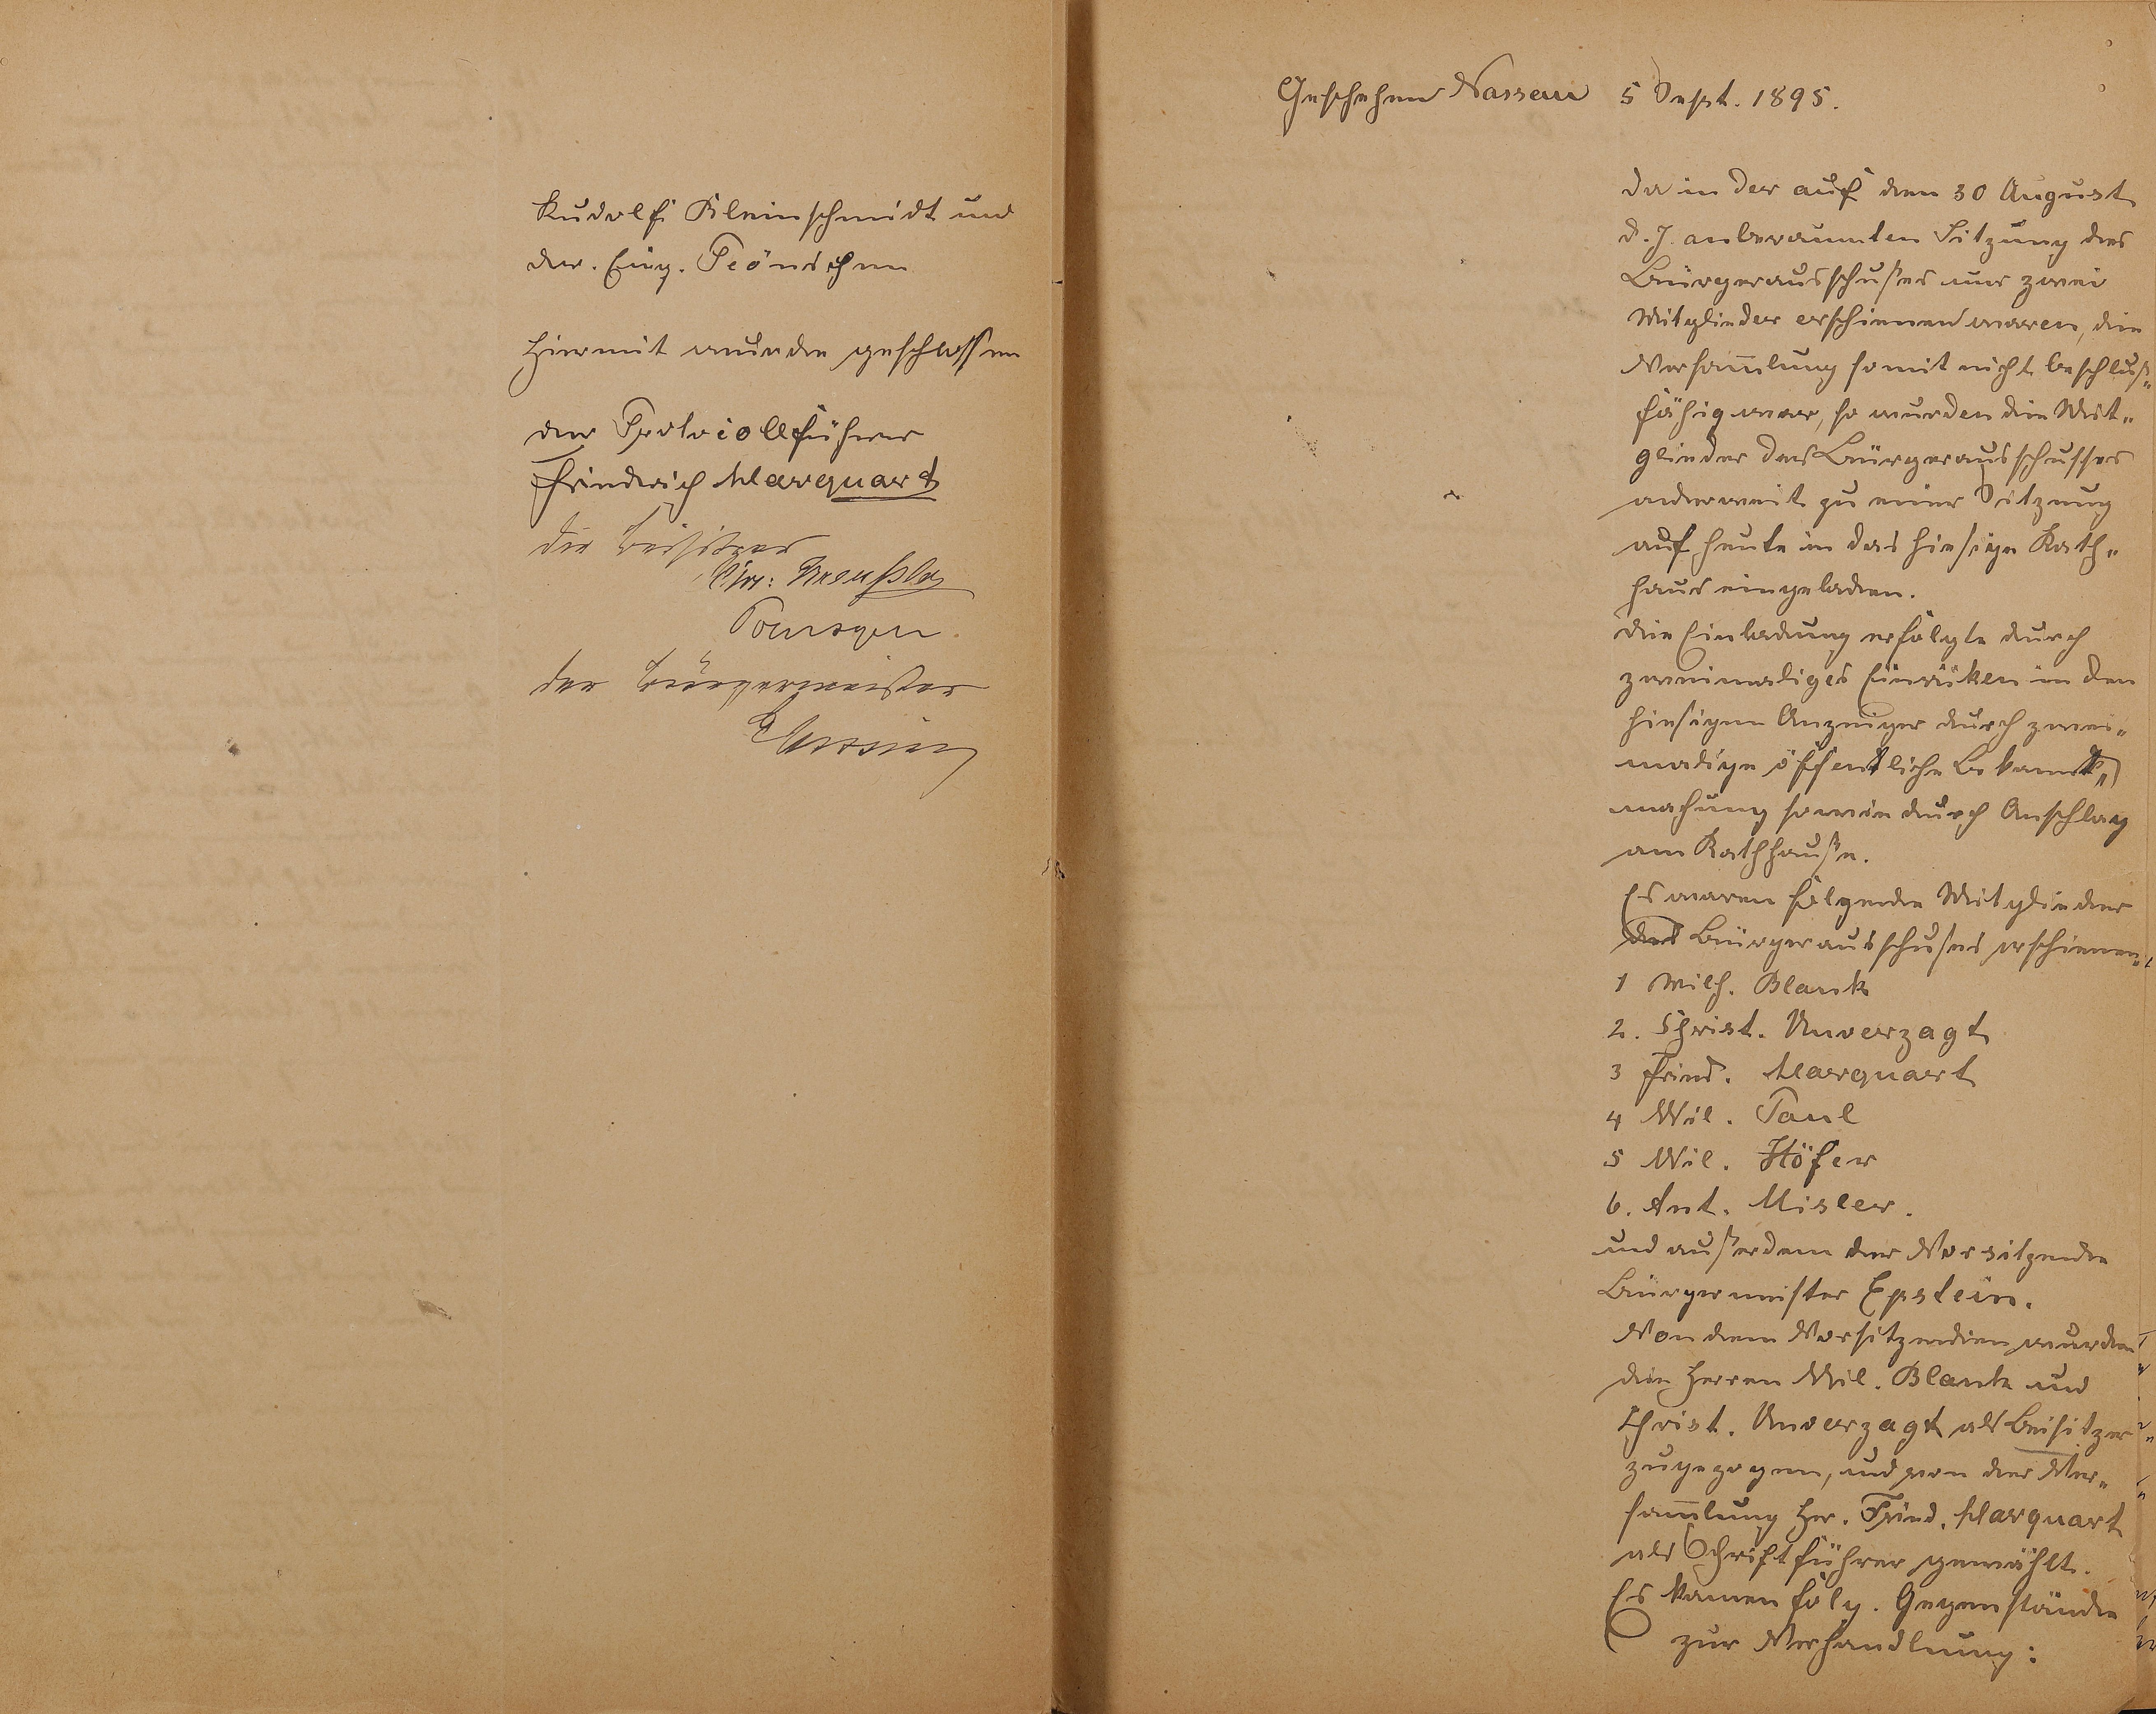 Rudolf Kleinschmidt und
der. Eug.
Hiermit wurde geschlossen
der Protocollführer
Friedrich Marquart
die Beisitzer
Der Bürgermeister
Geschehen Nassau 5 Sept. 1895.
Da in der auf den 30 August
d. J. anberaumten Sitzung des
Bürgerausschußes nur zwei
Mitglieder erschienen waren, die
Versam̅lung somit nicht beschluß„
fähig war, so wurden die Mit„
glieder des Bürgerausschusses
anderweit zu einer Sitzung
auf heute in das hiesige Rath„
haus eingeladen.
Die Einladung erfolgte durch
zweimaliges Einrüken in den
hiesigen Anzeiger durch zwei„
malige öffentliche Bekannt„
machung sowie durch Anschlag
am Rathhauße.
Es waren folgende Mitglieder
des Bürgerausschußes erschienen:
1 Wilh. Blank
2. Christ. Unverzagt
3 Fried. Marquart
4 Wil. Paul
5 Wil. Höfer
6. Ant. Misler.
und außerdem der Vorsitzende
Bürgermeister Epstein.
Von dem Vorsitzenden wurden
die Herren Wil. Blank und
Christ. Unverzagt als Beisitzer
zugezogen, und von der Ver„
sam̅lung Hr. Fried. Marquart
als Schriftführer gewählt.
Es kamen folg. Gegenstände
zur Verhandlung: